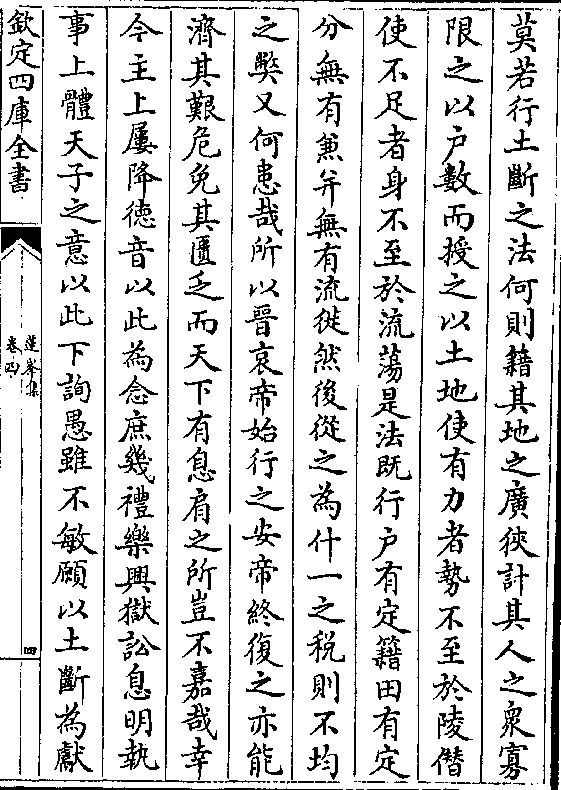 莫若行土斷之法何則籍其地之廣狹計其人之衆寡
限之以户數而授之以土地使有力者勢不至於陵僭
使不足者身不至於流蕩是法既行户有定籍田有定
分無有兼并無有流徙然後從之為什一之税則不均
之弊又何患哉所以晉哀帝始行之安帝終復之亦能
濟其艱危免其匱乏而天下有息肩之所豈不嘉哉幸
今主上屢降德音以此為念庶幾禮樂興獄訟息明執
事上體天子之意以此下詢愚雖不敏願以土斷為獻
欽定四庫全書
蓮峯集
卷四
四